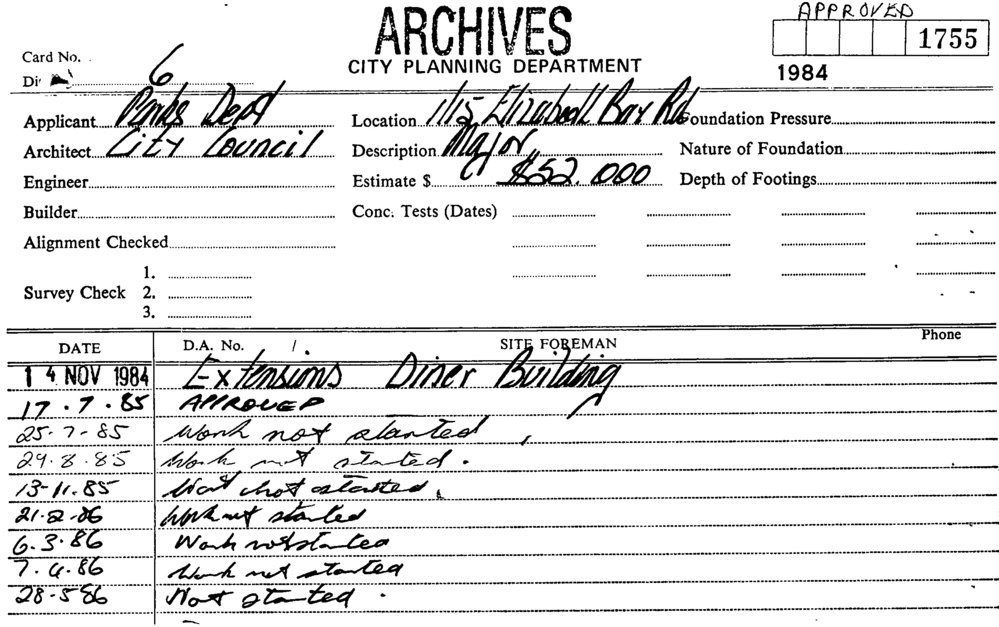 APPROVED
ARCHIVES
1755
CITY PLANNING DEPARTMENT
1984
Card No.
Di 6
Applicant Parks Dept
Location 1/15 Elizabeth Bay Rd
Foundation Pressure
Architect City Council
Description Major
Nature of Foundation
Engineer
Estimate $ $52.000
Depth of Footings
Builder
Conc. Tests (Dates)
Alignment Checked
Survey Check
1.
2.
3.
DATE D.A. No. / . SITE FOREMAN Phone
14 NOV 1984 Extensions Diner Building
17.7.85 APPROVED
25-7-85 Work not started
29.8.85 Work not started.
13-11.85 Work not started.
21.2.86 Work not started
6.3.86 Work not started
7.4.86 Work not started
28-5-86 Not started.